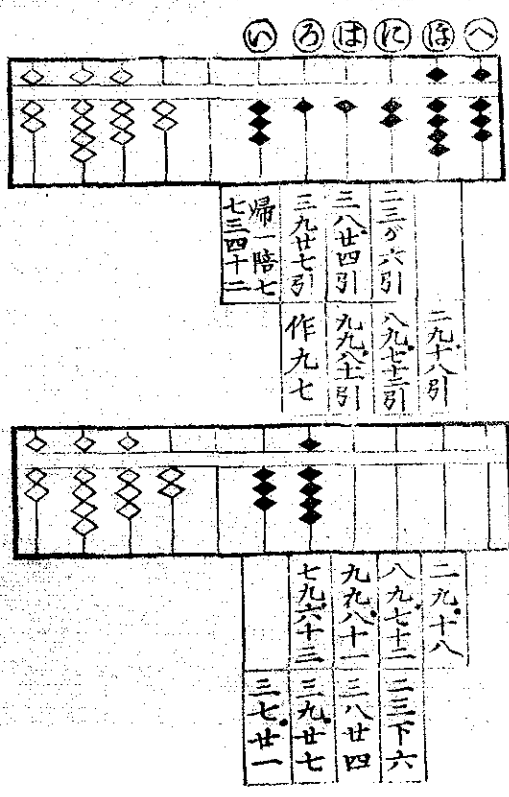 いろはにほへ
二九十八引
二三が六引
八九七十二引
三八廿四引
九九八十一引
三九廿七引
作九七
帰一陪七
七三四十二
二九十八
八九七十二
二三下六
九九八十一
三八廿四
七九六十三
三九廿七
三七廿一